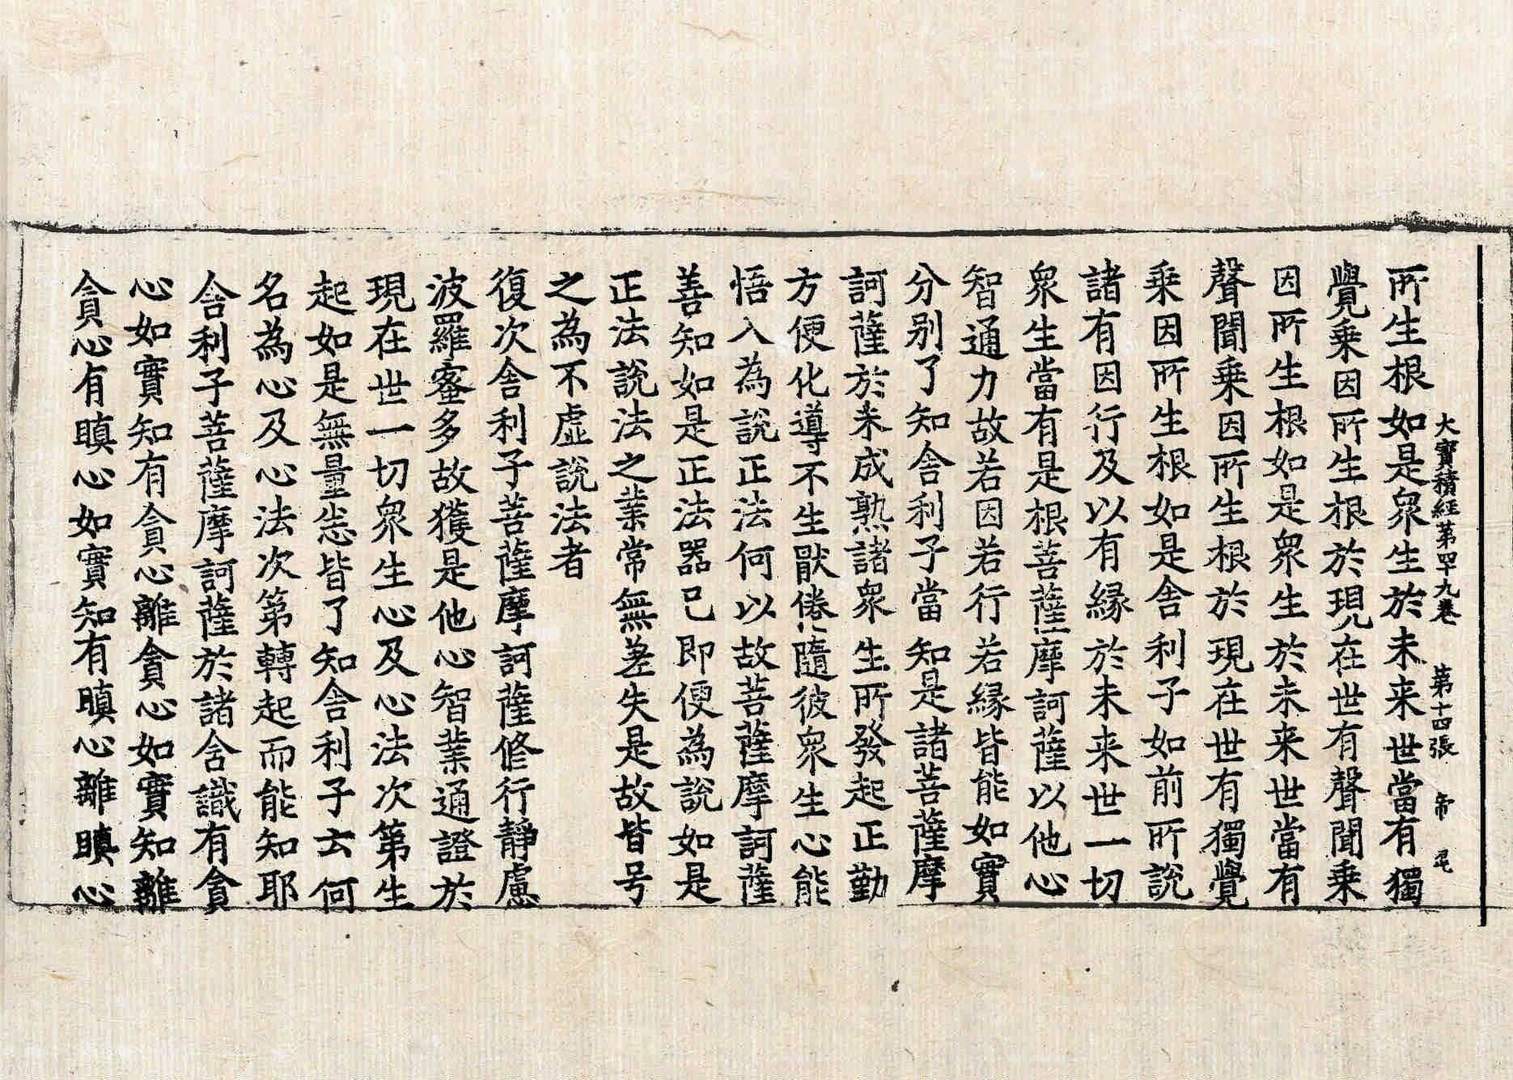 大寶積經第四十九卷　第十四張　帝
所生根如是衆生於未来世當有獨
覺乗因所生根於現在世有聲聞乗
因所生根如是衆生於未来世當有
聲聞乗因所生根於現在世有獨覺
乗因所生根如是舎利子如前所説
諸有因行及以有縁於未来世一切
衆生當有是根菩薩摩訶薩以他心
智通力故若因若行若縁皆能如實
分别了知舎利子當知是諸菩薩摩
訶薩於未成熟諸衆生所發起正勤
方便化導不生猒倦隨彼衆生心能
悟入為説正法何以故菩薩摩訶薩
善知如是正法器已即便為説如是
正法説法之業常無差失是故皆号
之為不虚説法者
復次舎利子菩薩摩訶薩修行靜慮
波羅蜜多故獲是他心智業通證於
現在世一切衆生心及心法次第生
起如是無量㳟皆了知舎利子云何
名為心及心法次第轉起而能知耶
舎利子菩薩摩訶薩於諸含識有貪
心如實知有貪心離貪心如實知離
貪心有瞋心如實知有瞋心離瞋心